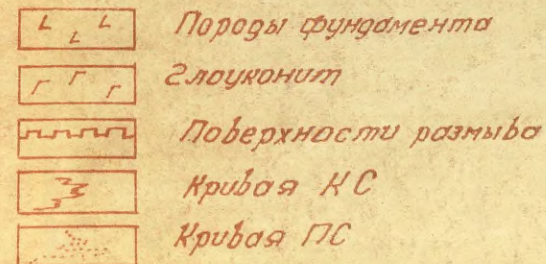 Породы фундамента
Глауконит
Поверхности размыва
Кривая КС
Кривая ПС